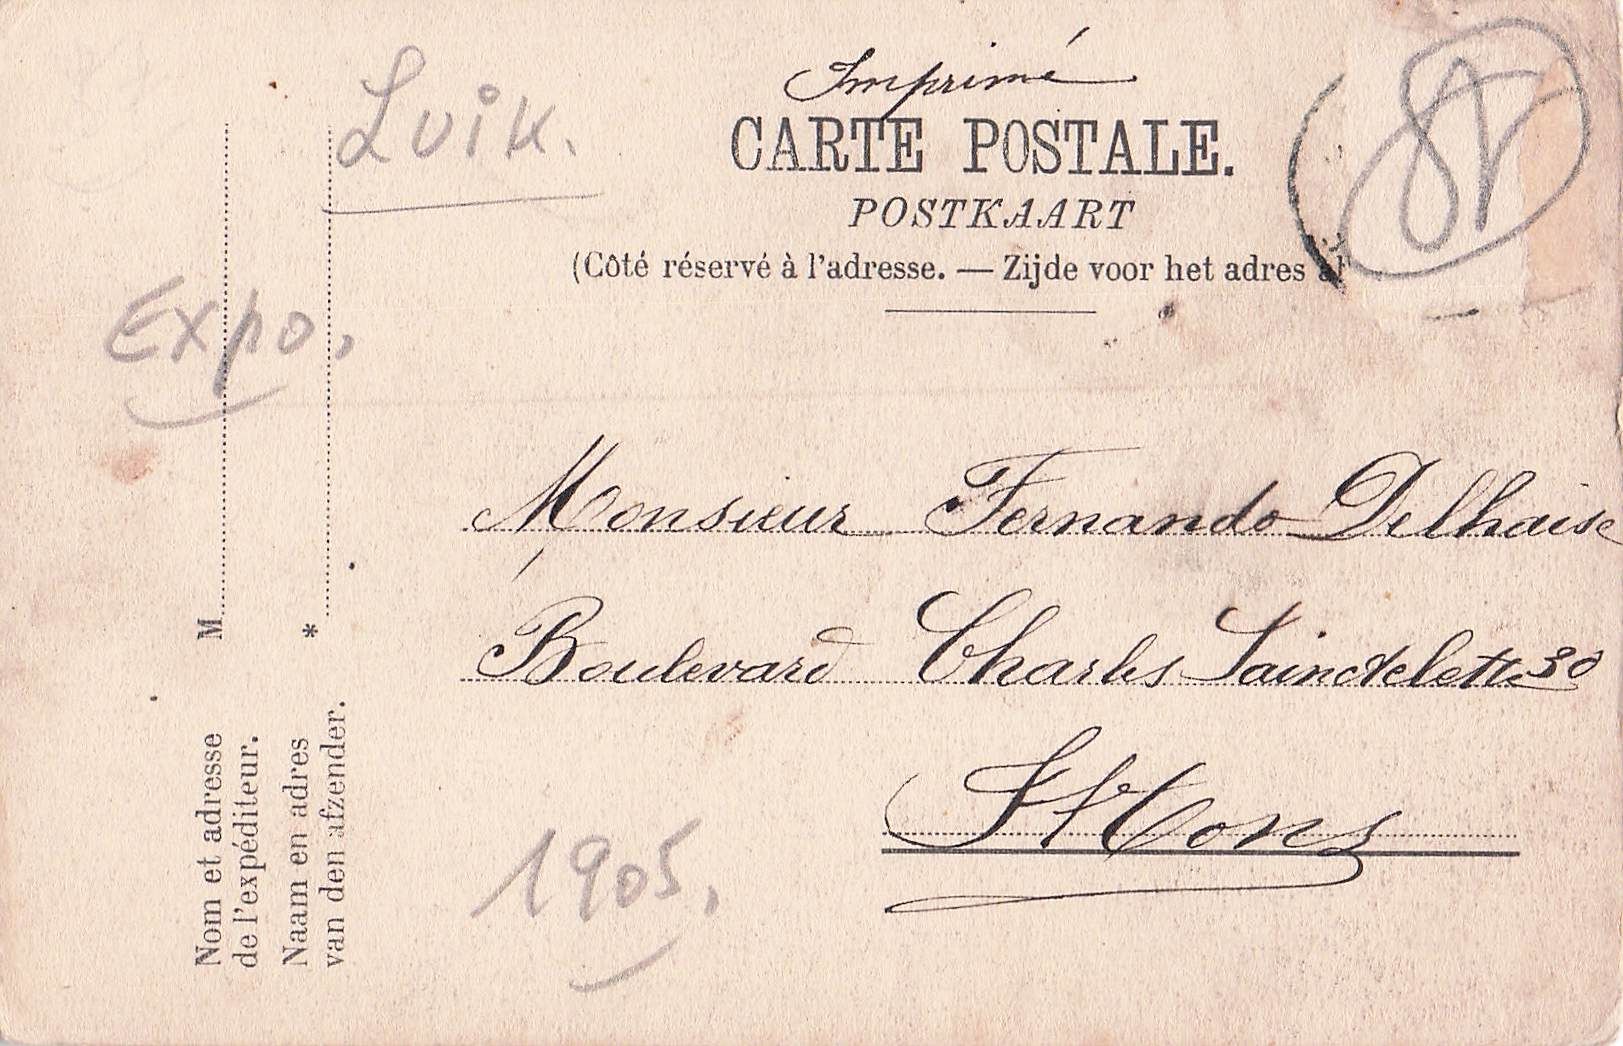 Imprimé
Luik.
CARTE POSTALE.
POSTKAART
(Côté réservé à l'adresse. — Zijde voor het adres
Expo.
Monsieur Fernando Delhaise
Boulevard Charles Sainctelette 30
Mons
1905.
M
*
Nom et adresse
de l'expéditeur.
Naam en adres
van den afzender.